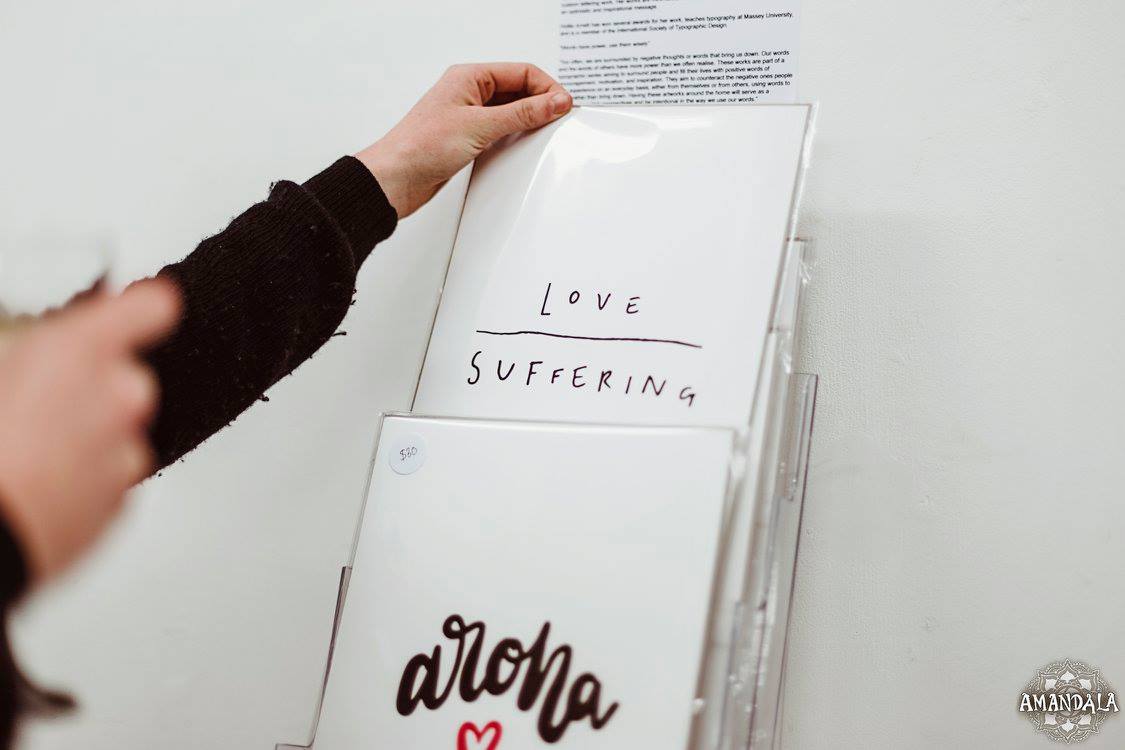 custom lettering work. Her works are
an optimistic and inspirational message.
has won several awards for her work, teaches typography at Massey University,
and is a member of the International Society of Typographic Design.
"Words have power, use them wisely"
"Too often, we are surrounded by negative thoughts or words that bring us down. Our words
and the words of others have more power than we often realise. These works are part of a
typographic series aiming to surround people and fill their lives with positive words of
encouragement, motivation, and inspiration. They aim to counteract the negative ones people
experience on an everyday basis, either from themselves or from others, using words to
rather than bring down. Having these artworks around the home will serve as a
and be intentional in the way we use our words."
LOVE
SUFFERING
$30
aroha
AMANDALA